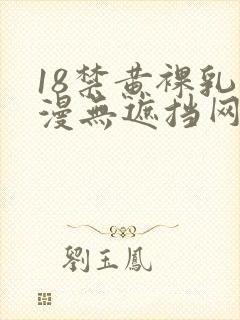 18禁黄裸乳
漫無遮挡网
劉玉鳳